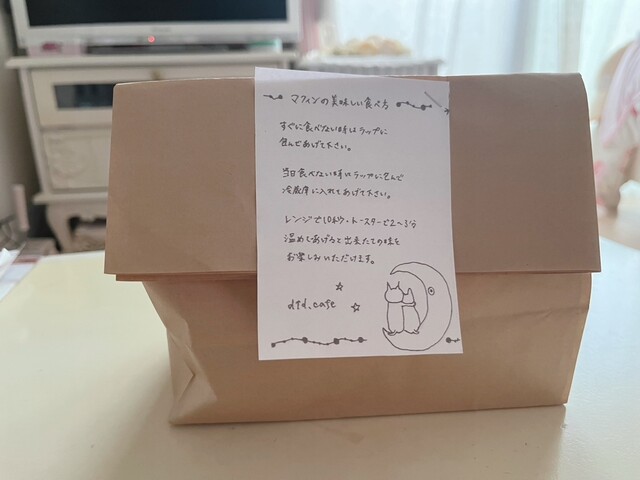 マフィンの美味しい食べ方
すぐに食べない時はラップに
包んであげて下さい。
当日食べない時はラップに包んで
冷蔵庫に入れてあげて下さい。
レンジで10秒・トースターで2〜3分
温めてあげると出来たての味を
お楽しみいただけます。
dtd.cafe